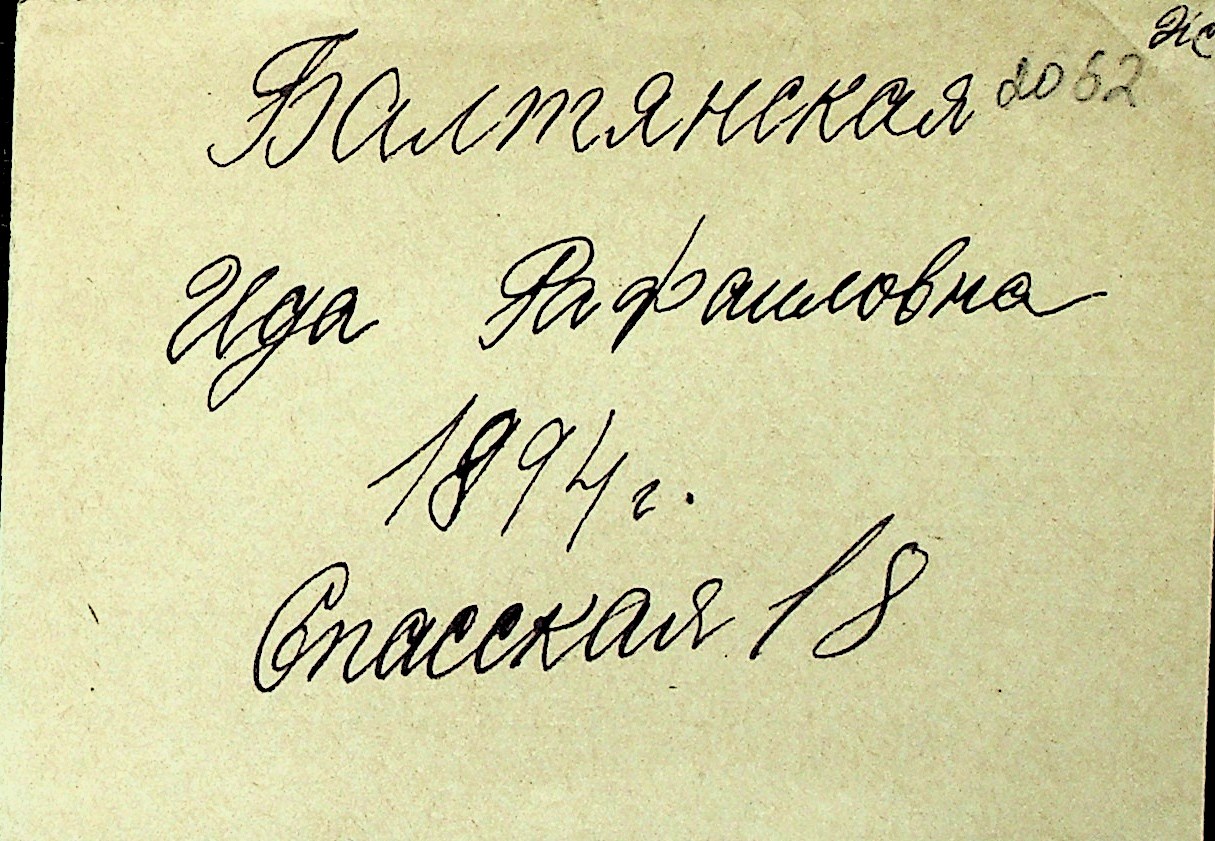 Балтянская 2062
Ида Рафаиловна
1894 г.
Спасская 18